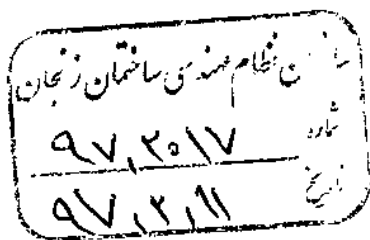 سازمان نظام مهندسی ساختمان زنجان
شماره ۹۷,۲۰۱۷
تاریخ ۹۷,۲,۱۱